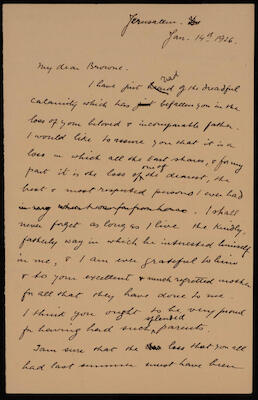 Jerusalem.
Jan. 14th 1926.
My dear Browne.
I have just read of the dreadful
calamity which has just befallen you in the
loss of your beloved & incomparable father.
I would like to assure you that it is a
loss in which all the East shares, & for my
part it is the loss of one of the dearest, the
best & most respected persons I ever had
in my when I was far from home. I shall
never forget as long as I live the kindly,
fatherly way in which he intrested himself
in me, & I am ever grateful to him
& to your excellent & much regretted mother
for all that they have done to me.
I think you ought to be very proud
for having had such splendid parents.
I am sure that the loss that you all
had last summer must have been